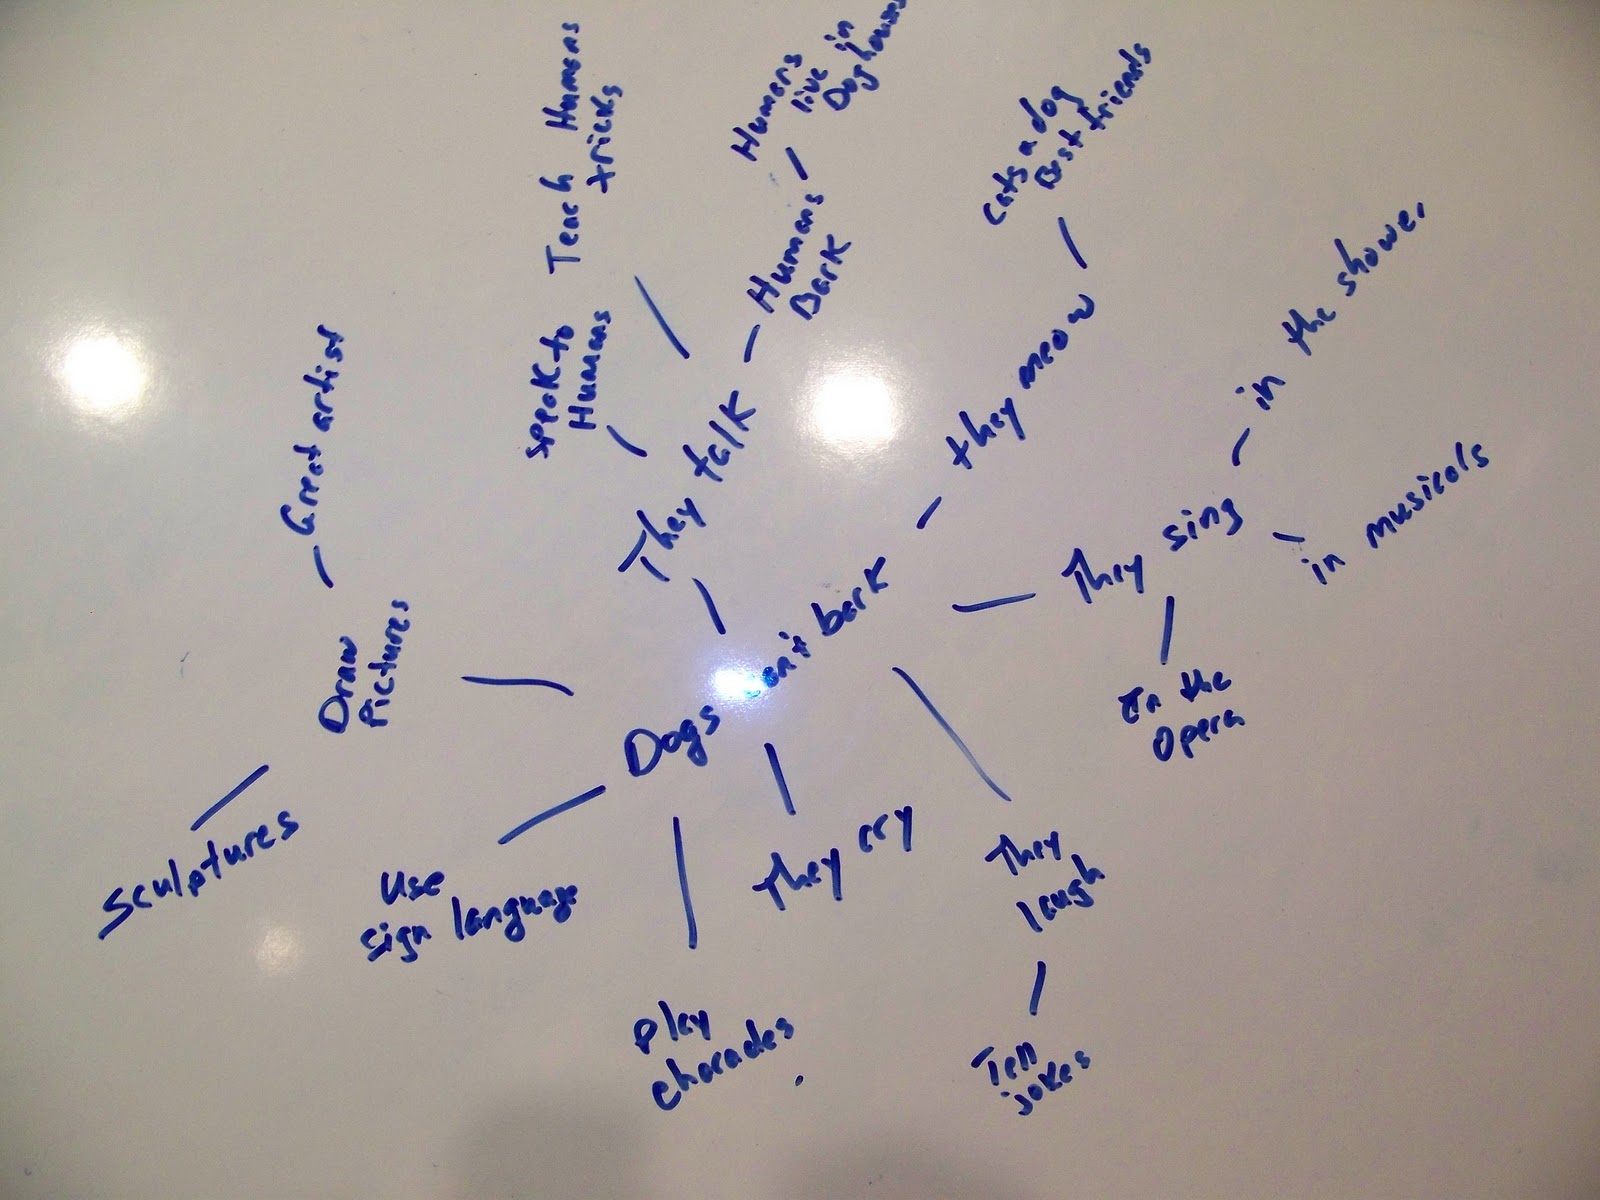 Teach Humans
tricks
Humans
live in
Doghouses
Cats a dog
Best friends
Speak to
Humans
Humans
Bark
in the shower
Great artist
They talk
they meow
They sing
in musicals
Draw
Pictures
Dogs can't bark
In the
Opera
Sculptures
Use
sign language
They cry
They
laugh
Play
charades
Tell
jokes